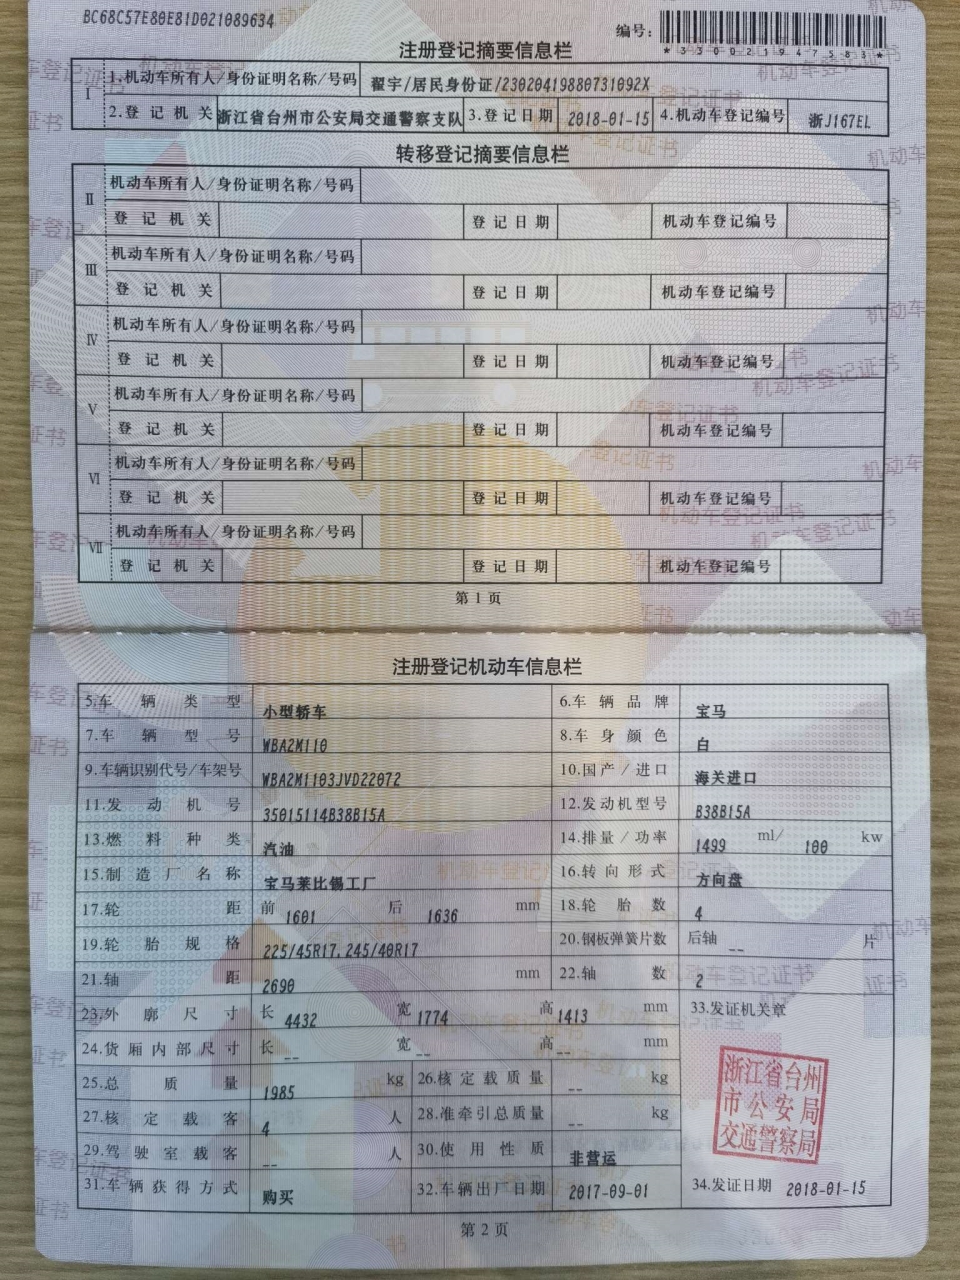 BC68C57E80E81D021089634
编号：
*330021947583*
注册登记摘要信息栏
Ⅰ 1.机动车所有人/身份证明名称/号码 翟宇/居民身份证/23020419880731092X
2.登记机关 浙江省台州市公安局交通警察支队 3.登记日期 2018-01-15 4.机动车登记编号 浙J167EL
转移登记摘要信息栏
Ⅱ 机动车所有人/身份证明名称/号码
登记机关 登记日期 机动车登记编号
Ⅲ 机动车所有人/身份证明名称/号码
登记机关 登记日期 机动车登记编号
Ⅳ 机动车所有人/身份证明名称/号码
登记机关 登记日期 机动车登记编号
Ⅴ 机动车所有人/身份证明名称/号码
登记机关 登记日期 机动车登记编号
Ⅵ 机动车所有人/身份证明名称/号码
登记机关 登记日期 机动车登记编号
Ⅶ 机动车所有人/身份证明名称/号码
登记机关 登记日期 机动车登记编号
第1页
注册登记机动车信息栏
5.车辆类型 小型轿车 6.车辆品牌 宝马
7.车辆型号 WBA2M110 8.车身颜色 白
9.车辆识别代号/车架号 WBA2M1103JVD22072 10.国产/进口 海关进口
11.发动机号 35015114B38B15A 12.发动机型号 B38B15A
13.燃料种类 汽油 14.排量/功率 1499 ml/ 100 kw
15.制造厂名称 宝马莱比锡工厂 16.转向形式 方向盘
17.轮距 前 1601 后 1636 mm 18.轮胎数 4
19.轮胎规格 225/45R17,245/40R17 20.钢板弹簧片数 后轴 -- 片
21.轴距 2690 mm 22.轴数 2
23.外廓尺寸 长 4432 宽 1774 高 1413 mm 33.发证机关章
24.货厢内部尺寸 长 -- 宽 -- 高 -- mm
25.总质量 1985 kg 26.核定载质量 -- kg
27.核定载客 4 人 28.准牵引总质量 -- kg
29.驾驶室载客 -- 人 30.使用性质 非营运
浙江省台州
市公安局
交通警察局
31.车辆获得方式 购买 32.车辆出厂日期 2017-09-01 34.发证日期 2018-01-15
第2页